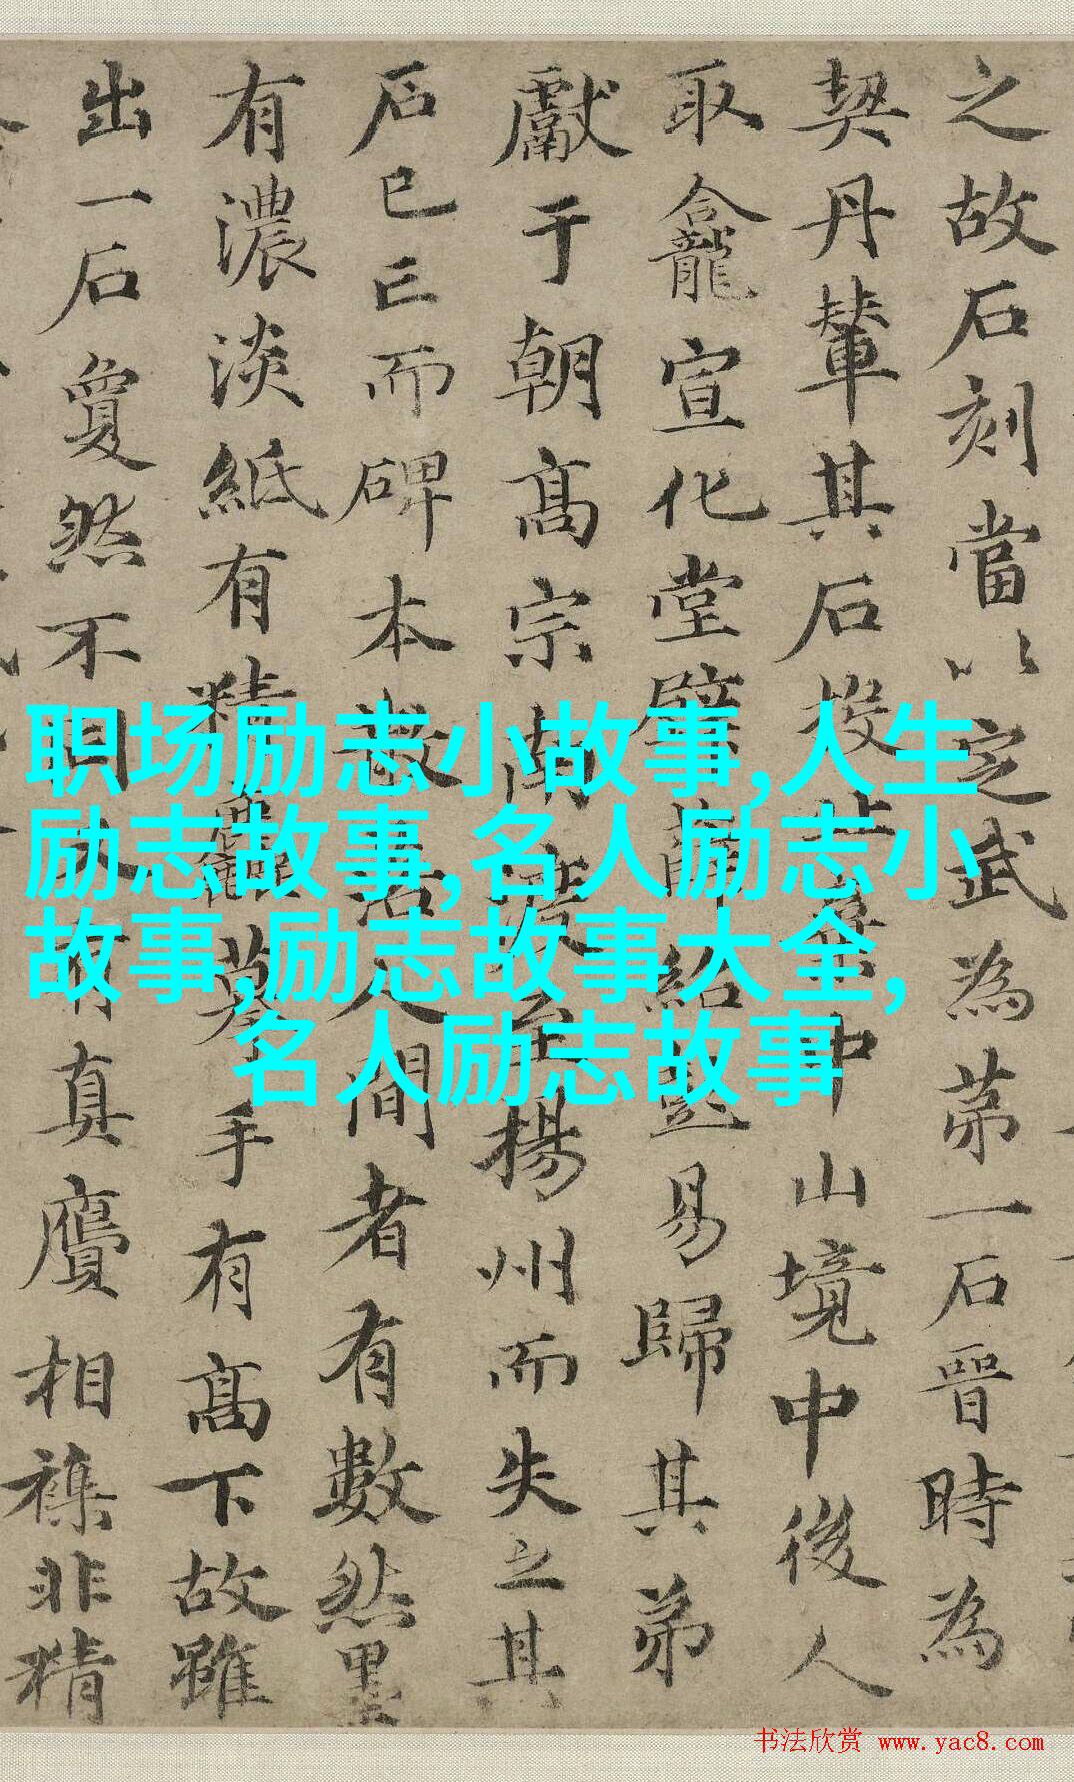 之故石刻當以定武為第一石晉時為
契丹輦其石投中山境中後人
取龕宣化堂壁薛紹彭易歸其弟
獻于朝髙宗南渡至揚州而失之其
石已亡而碑本散落人間者有數然墨
有濃淡紙有精麤摹手有髙下故雖
出一石夐然不同又有真贋相襍非精
职场励志小故事,人生
励志故事,名人励志小
故事,励志故事大全,
名人励志故事
书法欣赏 www.yac8.com